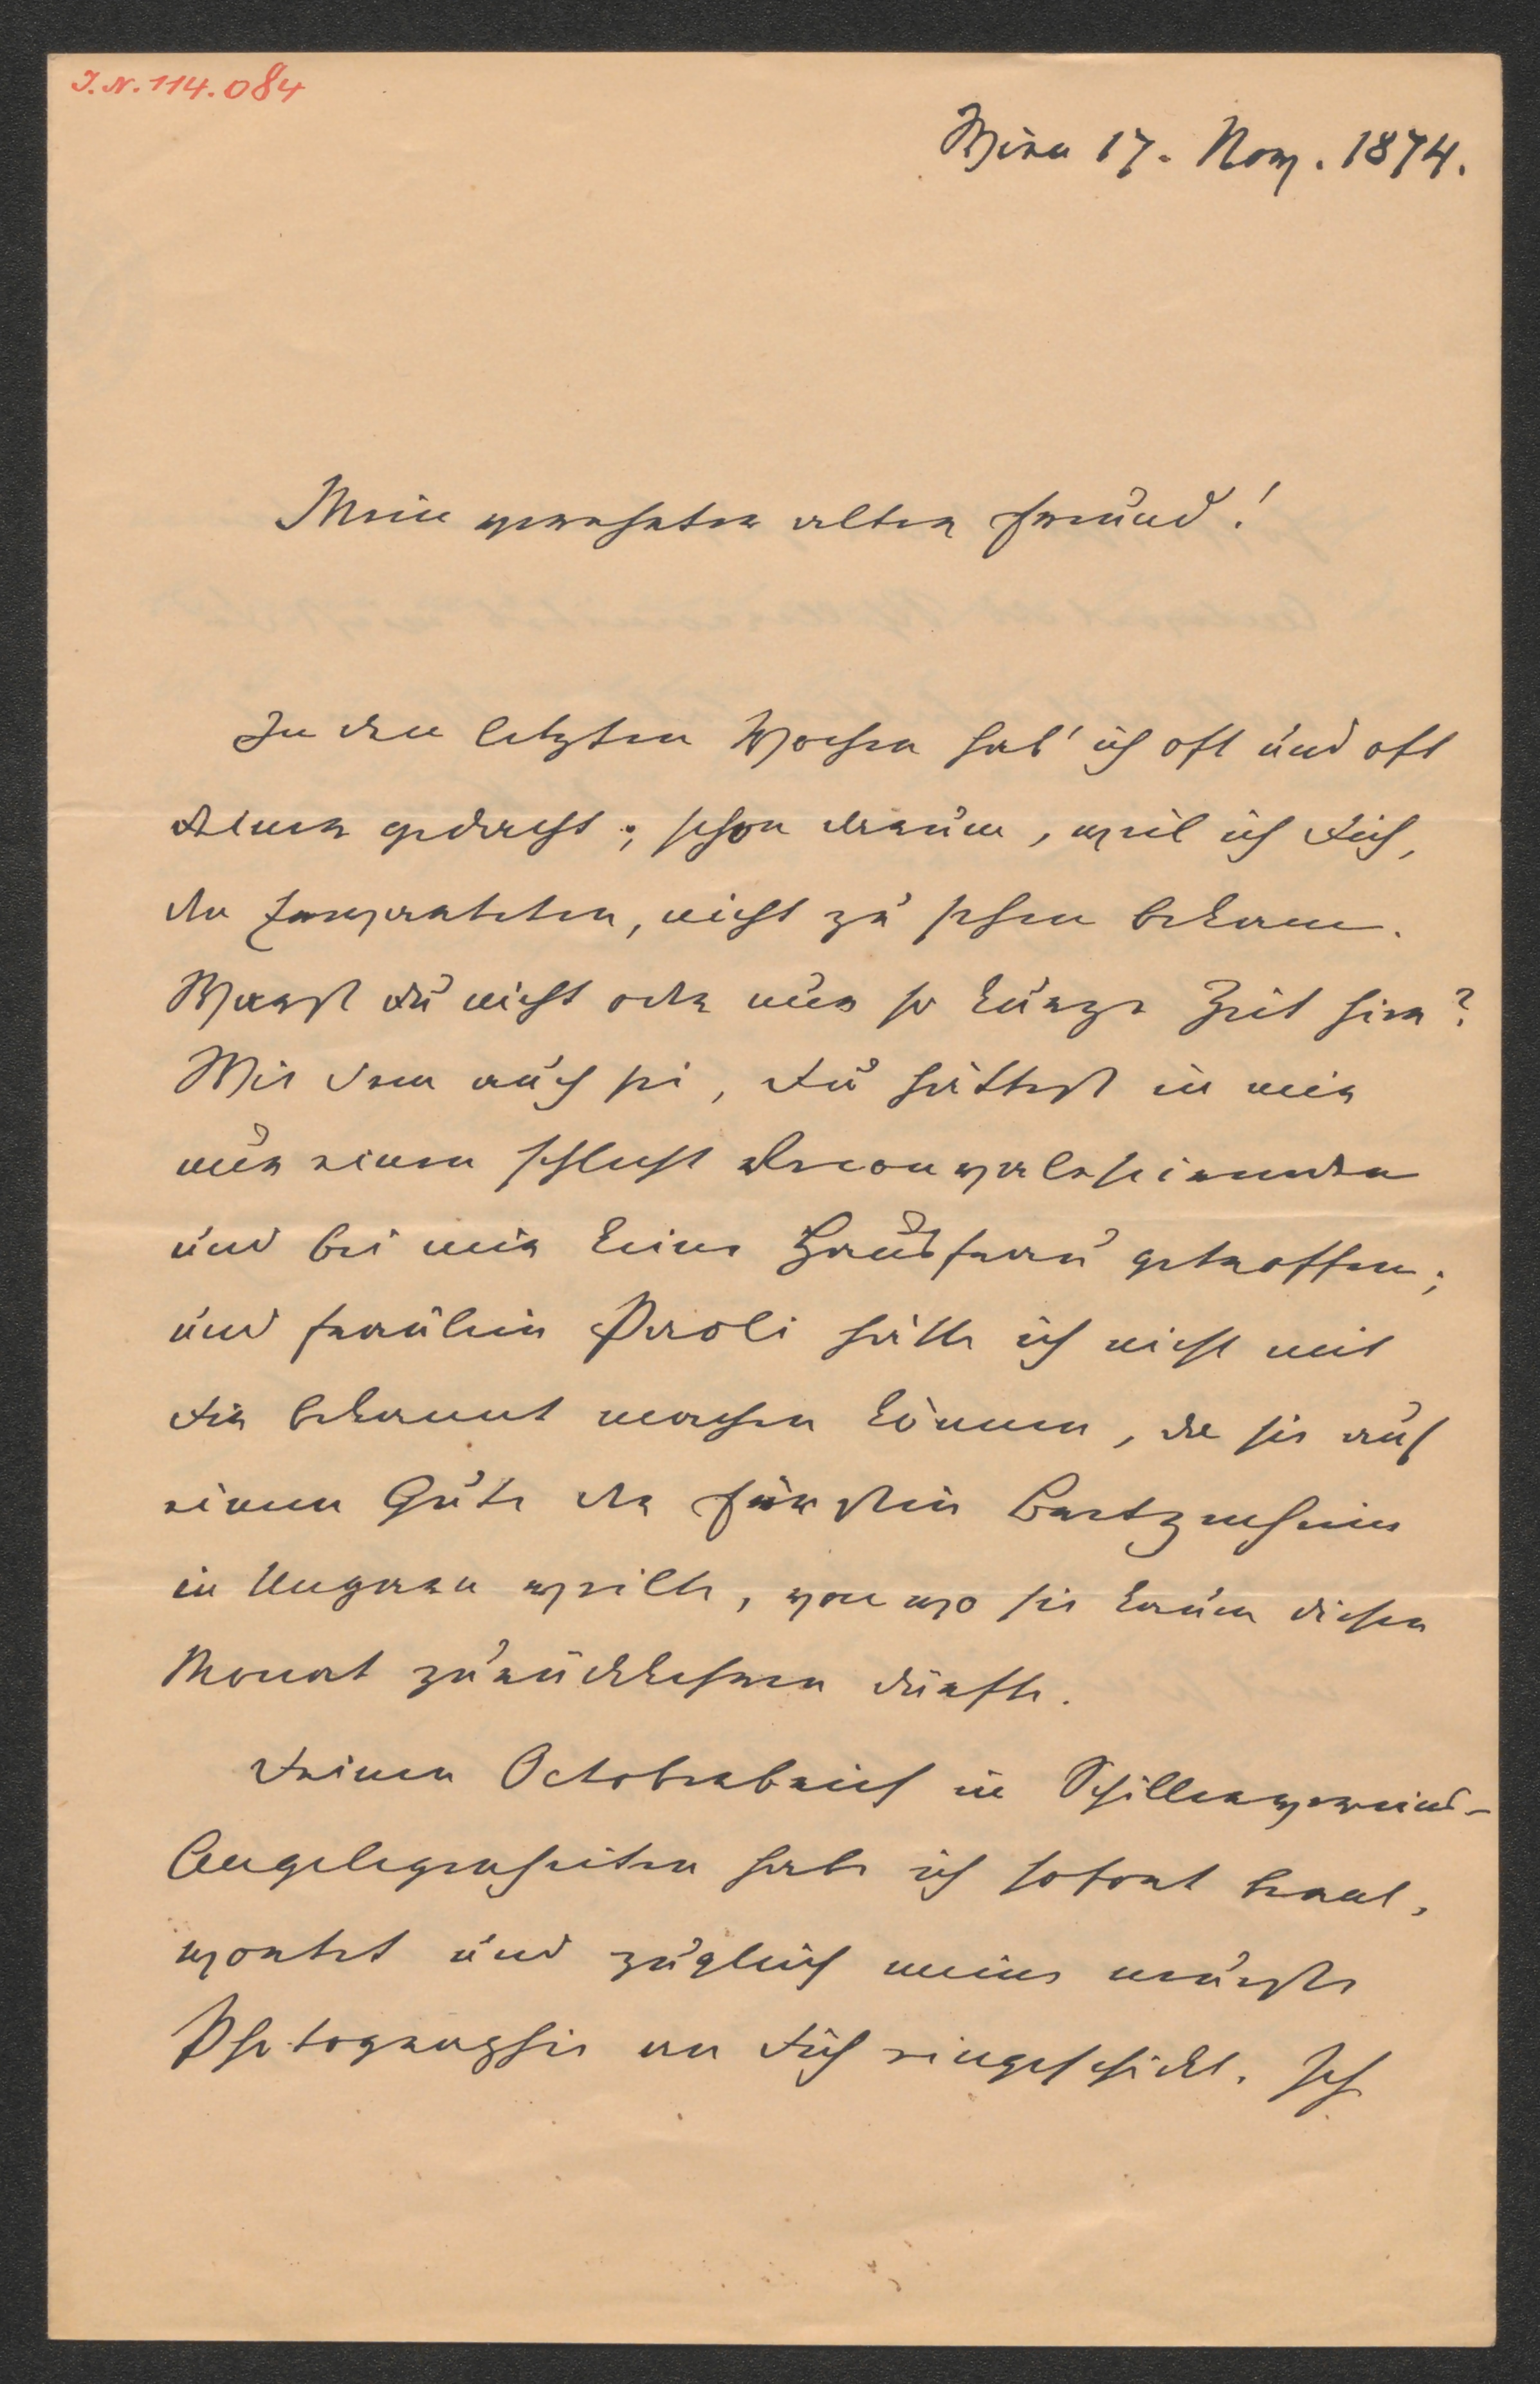 J.N. 114.084
Wien 17. Nov. 1874.
Mein verehrter alter Freund!
In den letzten Wochen hab' ich oft und oft
Deiner gedacht; schon darum, weil ich Dich,
den Erwarteten, nicht zu sehen bekam.
Warst Du nicht oder nur so kurze Zeit hier?
Wie dem auch sei, Du hättest in mir
nur einen schlecht Reconvaleszirenden
und bei mir keine Hausfrau getroffen;
und Fräulein Paoli hätte ich nicht mit
Dir bekannt machen können, da sie auf
einem Gute der Fürstin Bretzenheim
in Ungarn weilte, von wo sie kaum diesen
Monat zurückkehren dürfte.
Deinen Octoberbrief in Schillerverein-
Angelegenheiten habe ich sofort beant-
wortet und zugleich meine neueste
Photographie an Dich eingeschickt. Ich